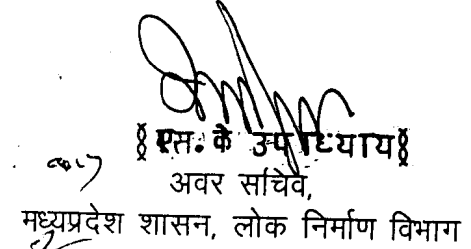 § एस.के उपाध्याय §
अवर सचिव,
मध्यप्रदेश शासन, लोक निर्माण विभाग